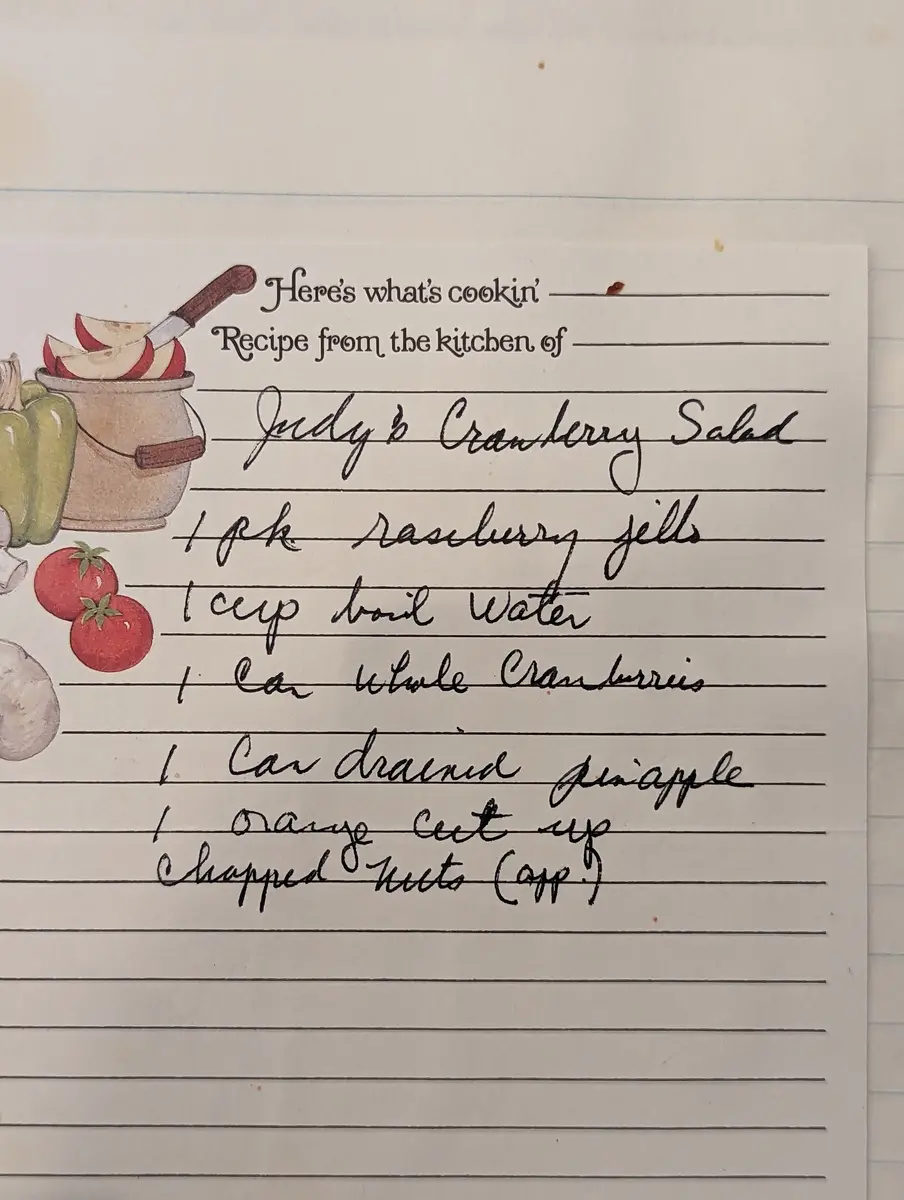 Here's what's cookin'
Recipe from the kitchen of
Judy's Cranberry Salad
1 pk rasburry jello
1 cup boil water
1 can whole Cranburries
1 Can drained pinapple
1 orange cut up
Chopped nuts (opp.)